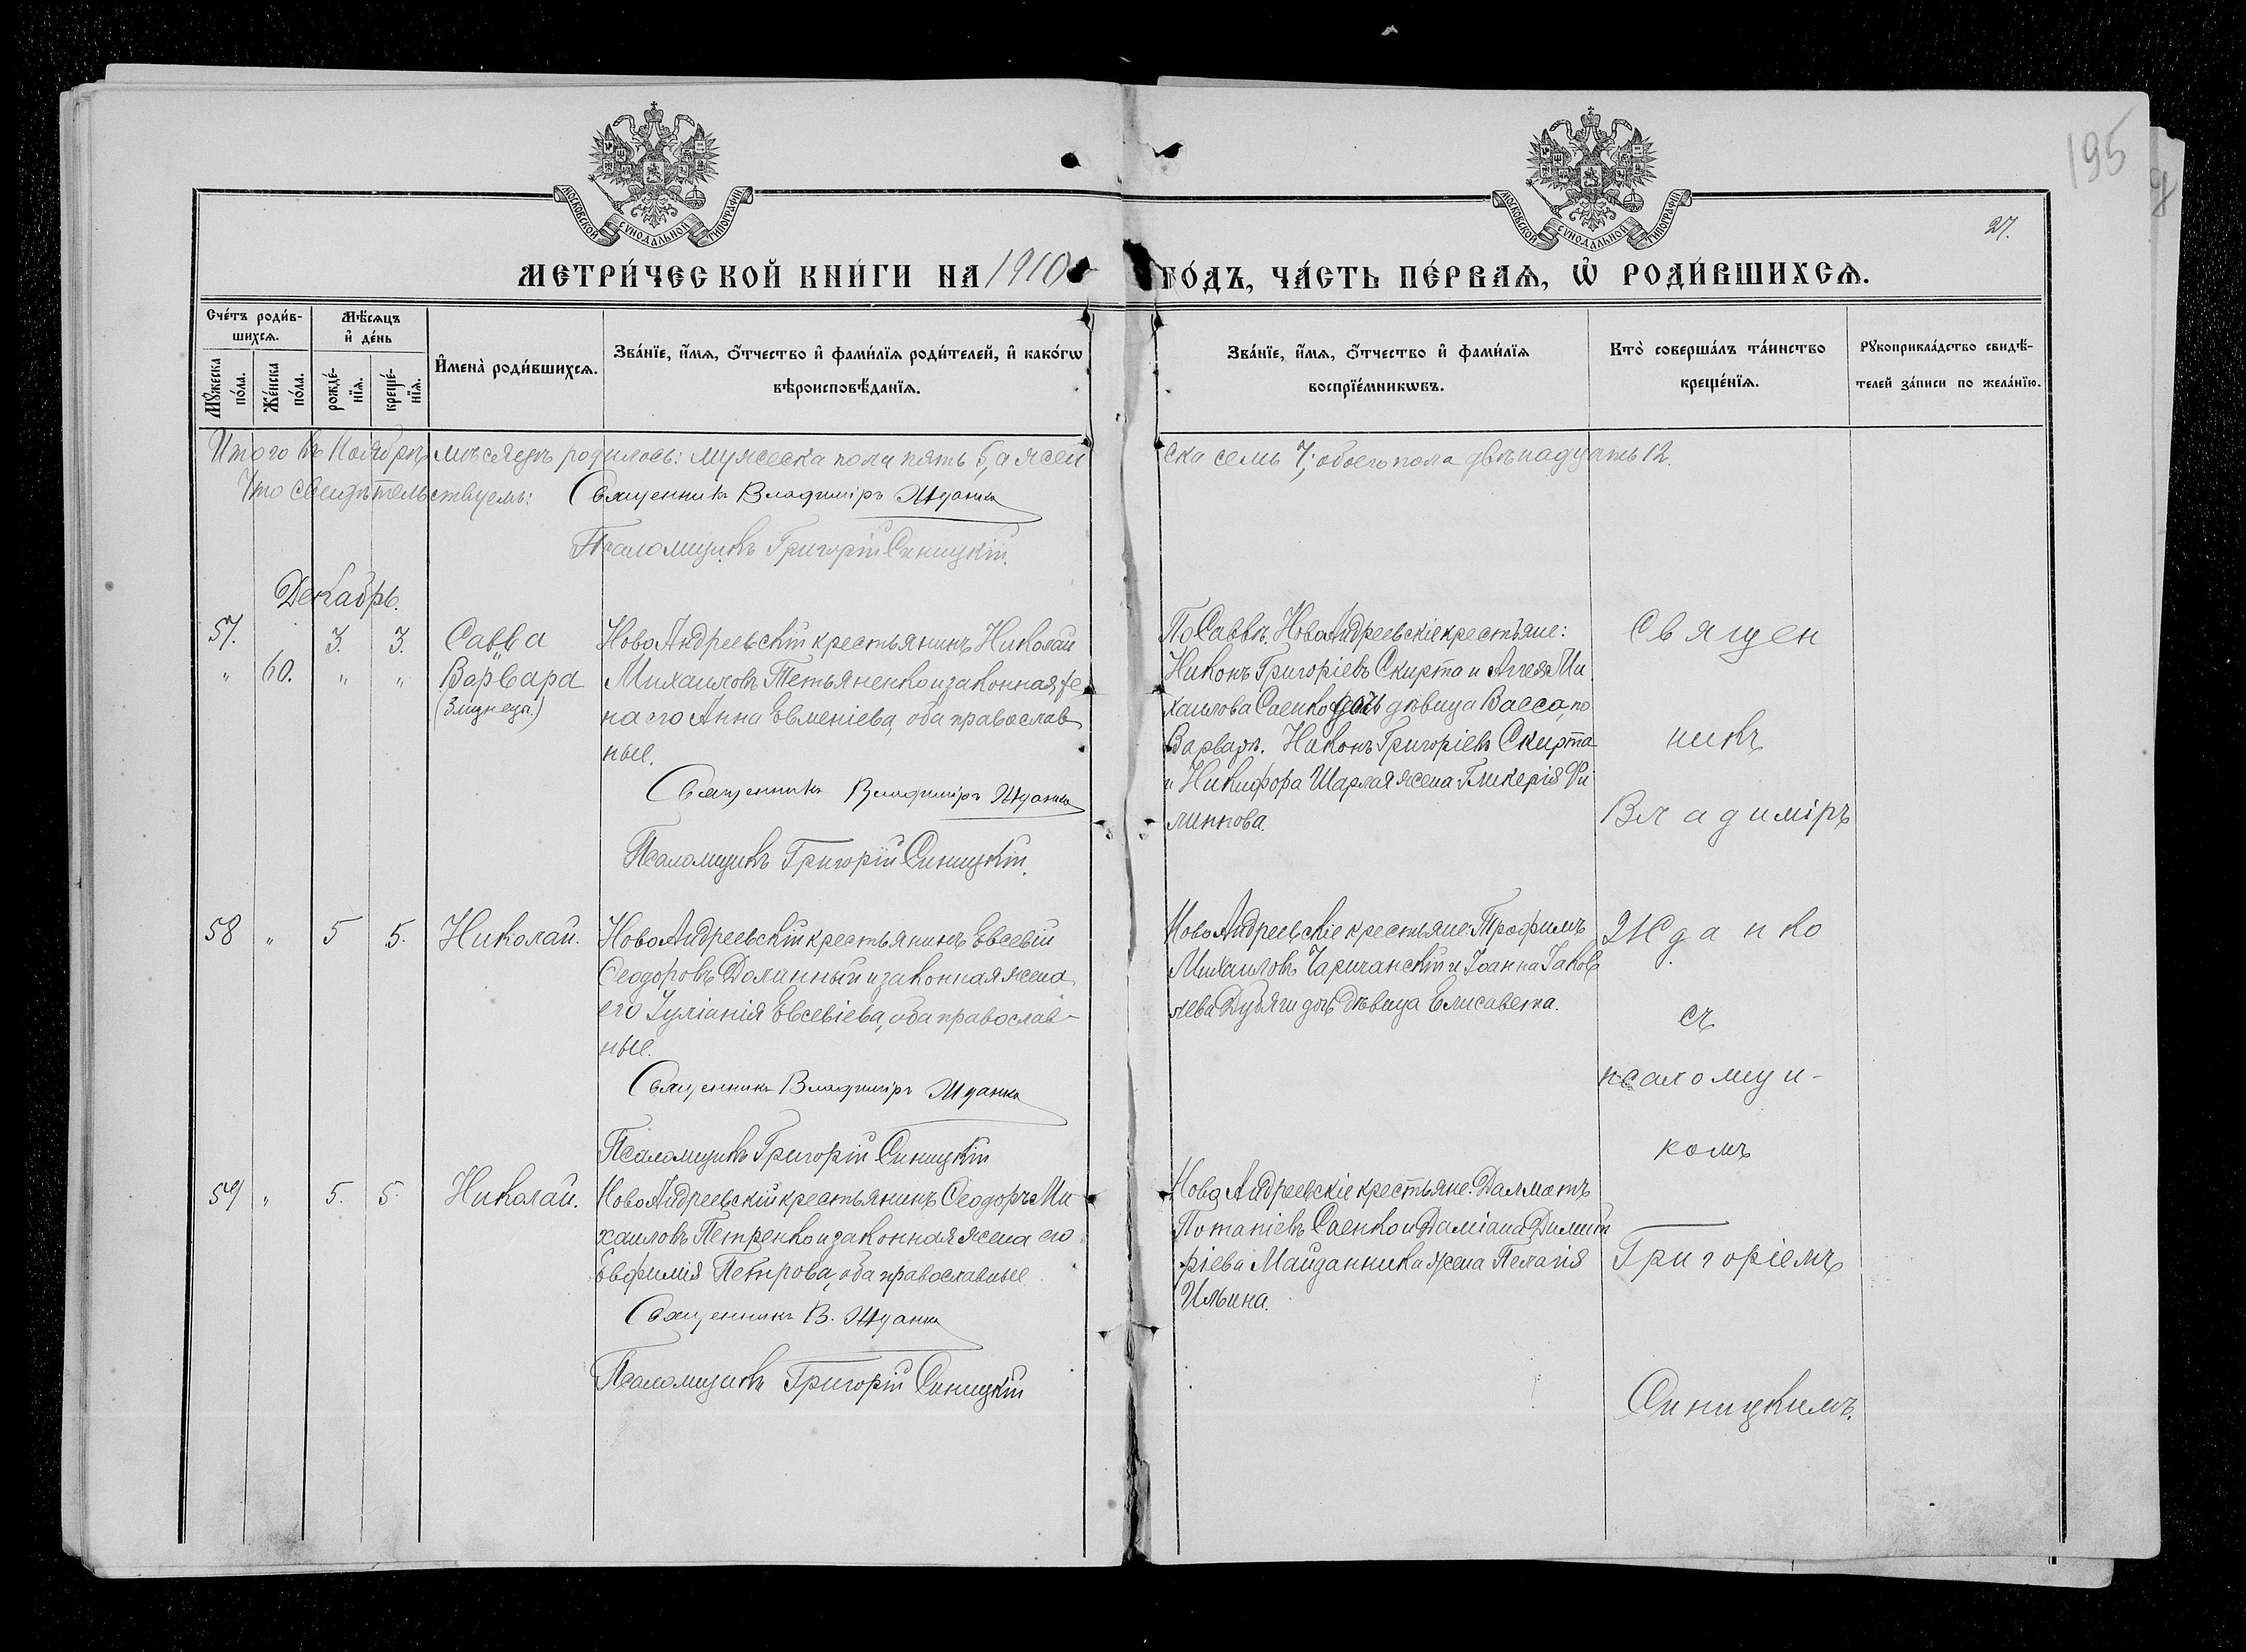 195
27.
МОСКОВСКОЙ СѴНОДАЛЬНОЙ ТИПОГРАФІИ
МОСКОВСКОЙ СѴНОДАЛЬНОЙ ТИПОГРАФІИ
МЕТРИ́ЧЕСКОЙ КНИ́ГИ НА 1910 ГО́ДЪ, ЧА́СТЬ ПЕ́РВАѦ, Ѡ҆ РОДИ́ВШИХСѦ.
Сче́тъ роди́в-
шихсѧ.
Мꙋ́жеска по́ла.
Же́нска по́ла.
Мѣ́сѧцъ
и҆ де́нь
рожде́-
нїѧ.
креще́-
нїѧ.
И҆мена̀ роди́вшихсѧ.
Зва́нїе, и҆́мѧ, ѻ҆́тчество и҆ фами́лїѧ роди́телей, и҆ како́гѡ
вѣроисповѣ́данїѧ.
Зва́нїе, и҆́мѧ, ѻ҆́тчество и҆ фами́лїѧ
воспрїе́мникѡвъ.
Кто̀ соверша́лъ та́инство
креще́нїѧ.
Рꙋкоприкла́дство свидѣ́-
телей за́писи по жела́нїю.
Итого въ Ноябрѣ мѣсяцѣ родилось: мужеска пола пять 5, а жен
ска семь 7; обоего пола двѣнадцать 12.
Что свидѣтельствуемъ: Священникъ Владиміръ Жданко
Псаломщикъ Григорій Синицкій.
Декабрь.
57. 3. 3. Савва
" 60. " " Варвара
(Близнецы)
НовоАндреевскій крестьянинъ Николай
Михаиловъ Тетьяненко и законная же
на его Анна Евменіева, оба православ
ные.
Священникъ Владиміръ Жданко
Псаломщикъ Григорій Синицкій.
По Саввѣ. НовоАндреевскіе крестьяне:
Никонъ Григоріевъ Скирта и Ми
хаилова Саенко дочь дѣвица Васса, по
Варварѣ. Никонъ Григоріевъ Скирта
и Никифора Шарлая жена Гликерія Фи
липпова.
58 " 5 5. Николай.
НовоАндреевскій крестьянинъ Евсевій
Ѳеодоровъ Долинный и законная жена
его Іуліанія Евсевіева, оба православ-
ные.
Священникъ Владиміръ Жданко
Псаломщикъ Григорій Синицкій
НовоАндреевскіе крестьяне: Трофимъ
Михаиловъ Чаричанскій и Іоанна Іаков
лева Дубяги дочь дѣвица Елисавета.
59 " 5. 5. Николай.
НовоАндреевскій крестьянинъ Ѳеодоръ Ми
хаиловъ Петренко и законная жена его
Евфимія Петрова, оба православные
Священникъ В. Жданко
Псаломщикъ Григорій Синицкій
НовоАндреевскіе крестьяне. Далматъ
Потапіевъ Саенко и Даміана Димит
ріева Майданника жена Пелагія
Ильина.
Священ
никъ
Владиміръ
Жданко
съ
псаломщи-
комъ
Григоріемъ
Синицкимъ.